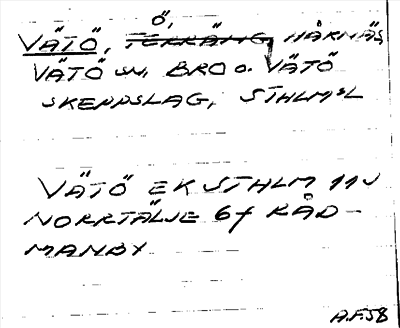 Ö,
VÄTÖ, TERRÄNG, HÅRNÄS,
VÄTÖ SN, BRO O. VÄTÖ
SKEPPSLAG, STHLM:S L
VÄTÖ EK STHLM 11J
NORRTÄLJE 6f RÅD-
MANBY
A.F.58